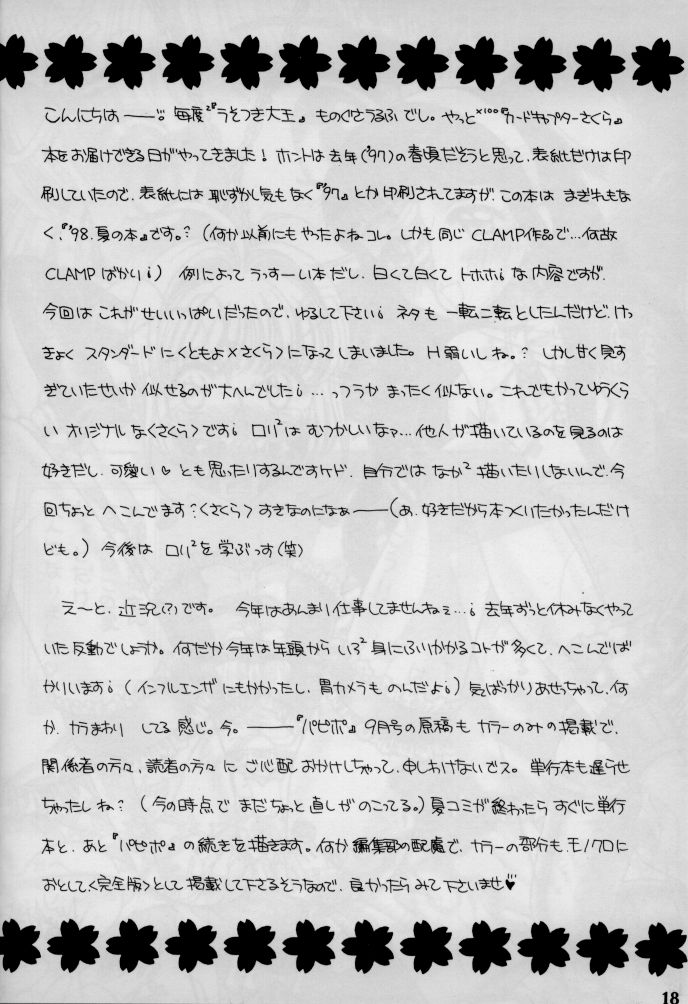 こんにちは──っ。毎度²『うそつき大王』ものぐさうるふでし。やっと×100『カードキャプターさくら』
本をお届けできる日がやってきました！ホントは去年('97)の春頃だそうと思って、表紙だけは印
刷していたので、表紙には恥ずかし気もなく『'97』とか印刷されてますが、この本はまぎれもな
く、『'98.夏の本』です。?（何か以前にもやったよねコレ。しかも同じCLAMP作品で…何故
CLAMPばかり¡）例によってうっすーい本だし、白くて白くてトホホ¡な内容ですが、
今回はこれがせいいっぱいだったので、ゆるして下さい¡ ネタも一転二転としたんだけど、けっ
きょくスタンダードに〈ともよ×さくら〉になってしまいました。H弱いしね。? しかし甘く見す
ぎていたせいか似せるのが大へんでした¡…っつうかまったく似ない。これでもかってゆうくら
いオリジナルな〈さくら〉です¡ ロリ²はむつかしいなァ…他人が描いているのを見るのは
好きだし、可愛い♡とも思ったりするんですケド、自分ではなか²描いたりしないんで、今
回ちょっとへこんでます?〈さくら〉すきなのになぁ──（あ、好きだから本つくりたかったんだけ
ども。）今後はロリ²を学ぶっす(笑)
え〜と、近況(?)です。今年はあんまり仕事してませんねぇ…¡ 去年ずっと休みなくやって
いた反動でしょうか。何だか今年は年頭からいろ²身にふりかかるコトが多くて、へこんでば
かりいます¡（インフルエンザにもかかったし、胃カメラものんだよ¡）気ばっかりあせっちゃって、何
か、カラまわりしてる感じ。今。──『パピポ』9月号の原稿もカラーのみの掲載で、
関係者の方々、読者の方々にご心配おかけしちゃって、申しわけないでス。単行本も遅らせ
ちゃったしね?（今の時点でまだちょっと直しがのこってる。）夏コミが終わったらすぐに単行
本と、あと『パピポ』の続きを描きます。何か編集部の配慮で、カラーの部分も、モノクロに
おとして〈完全版〉として掲載して下さるそうなので、良かったらみて下さいませ♥
18